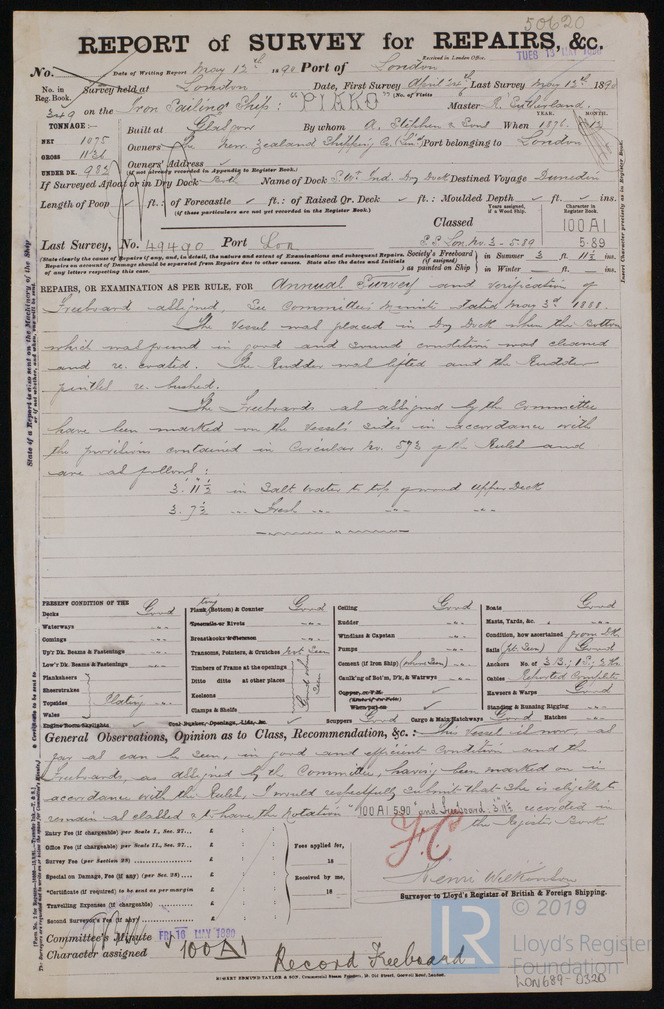 50620
REPORT of SURVEY for REPAIRS, &c.
Received in London Office.
TUES 13 MAY 1890
No. Date of Writing Report May 12th 1890 Port of London
No. in Reg. Book. Survey held at London Date, First Survey April 24th Last Survey May 12th 1890
(No. of Visits
349 on the Iron Sailing Ship: "PIAKO" Master R. Sutherland.
YEAR. MONTH.
TONNAGE:— Built at Glasgow By whom A. Stephen & Sons When 1876. 12
NET 1075
GROSS 1136
UNDER DK. 983
Owners The New Zealand Shipping Co. Limd. Port belonging to London
Owners' Address
(if not already recorded in Appendix to Register Book.)
If Surveyed Afloat or in Dry Dock Both Name of Dock S. W. Ind. Dry Dock Destined Voyage Dunedin
Length of Poop ft.: of Forecastle ft.: of Raised Qr. Deck ft.: Moulded Depth ft. ins.
(if these particulars are not yet recorded in the Register Book.)
Years assigned, if a Wood Ship. Character in Register Book.
Classed 100 A1
S.S. Lon. No. 3 - 5.89 5.89
Last Survey, No. 49490 Port Lon
(State clearly the cause of Repairs if any, and, in detail, the nature and extent of Examinations and subsequent Repairs.
Repairs on account of Damage should be separated from Repairs due to other causes. State also the dates and Initials of any letters respecting this case.
Society's Freeboard (if assigned) as painted on Ship in Summer 3 ft. 11½ ins.
in Winter — ft. — ins.
Insert Character precisely as in Register Book.
REPAIRS, OR EXAMINATION AS PER RULE, FOR Annual Survey and verification of
Freeboard assigned, See Committee's Minute dated May 3rd 1888.
The Vessel was placed in Dry Dock when the Bottom
which was found in good and sound condition was cleaned
and re. coated. The Rudder was lifted and the Rudder
pintles re. bushed.
The Freeboards as assigned by the Committee
have been marked on the Vessel's sides in accordance with
the provisions contained in Circular No. 593 of the Rules and
are as follows:
3. 11½ in Salt Water to top of wood Upper Deck
3. 7½ " Fresh " " "
PRESENT CONDITION OF THE
Decks Good
Waterways
Comings
Up'r Dk. Beams & Fastenings
Low'r Dk. Beams & Fastenings
Planksheers
Sheerstrakes
Topsides Plating
Wales
Engine Room Skylights
Plank (Bottom) & Counter Good
Treenails or Rivets
Breasthooks
Transoms, Pointers, & Crutches Not Seen
Timbers of Frame at the openings
Ditto ditto at other places
Keelsons
Clamps & Shelfs
Good where Seen
Coal Bunker, Openings, Lids, &c.
Ceiling Good
Rudder
Windlass & Capstan
Pumps
Cement (if Iron Ship) (where Seen)
Caulk'ng of Bot'm, D'k, & Wat'rwys
Scuppers Good Cargo & Main Hatchways Good Hatches
Boats Good
Masts, Yards, &c.
Condition, how ascertained from Dk
Sails (pt. Seen) Good
Anchors No. of 3 B.; 1 S.; 2 K.
Cables Reported Complete
Hawsers & Warps Good
Standing & Running Rigging
General Observations, Opinion as to Class, Recommendation, &c.: This Vessel is now, as
far as can be seen, in good and efficient Condition and the
Freeboards, as assigned by the Committee, having been marked on in
accordance with the Rules, I would respectfully submit that She is eligible to
remain as classed & to have the Notation "100 A1 5.90" and Freeboard. 3. 11½ recorded in
the Register Book
Entry Fee (if chargeable) per Scale II., Sec. 27...
Office Fee (if chargeable) per Scale II., Sec. 27...
Survey Fee (per Section 28)
Special on Damage, Fee (if any) (per Sec. 28)
*Certificate (if required) to be sent as per margin
Travelling Expenses (if chargeable)
Second Surveyor's Fee (if any)
Fees applied for,
18
Received by me,
18
Henri Wilkinson
Surveyor to Lloyd's Register of British & Foreign Shipping.
Committee's Minute FRI 16 MAY 1890
Character assigned 100 A1 Record Freeboard
ROBERT EDMUND TAYLOR & SON, Commercial Steam Printers, 19, Old Street, Goswell Road, London.
LR
© 2019
Lloyd's Register
Foundation
LON689-0320